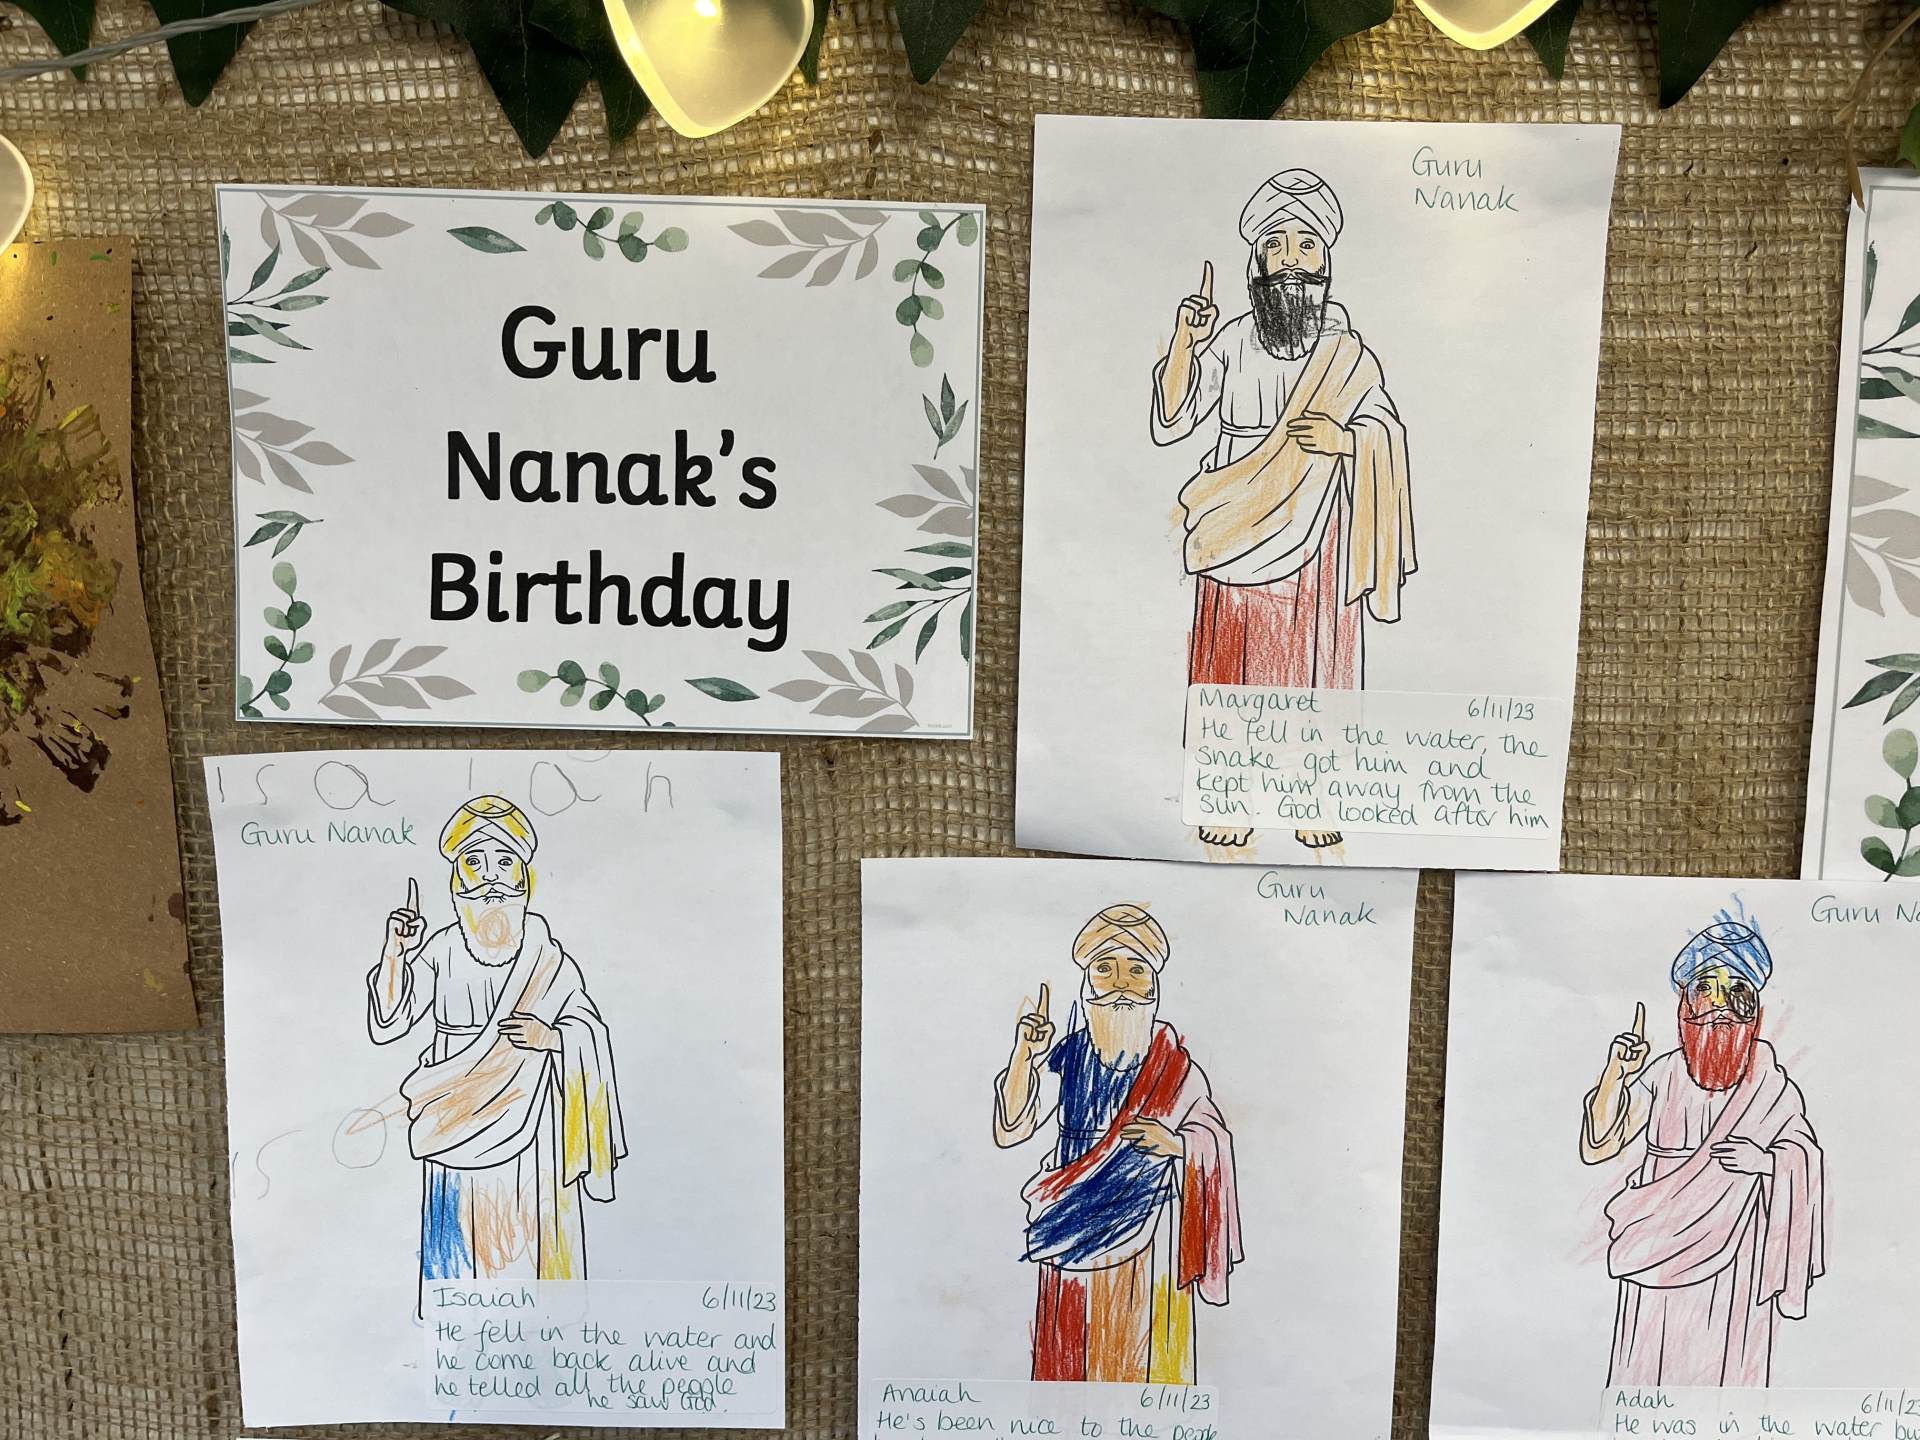 Guru
Nanak's
Birthday
Guru
Nanak
Margaret 6/11/23
He fell in the water, the
snake got him and
kept him away from the
sun. God looked after him
Isaiah
Guru Nanak
Is
Isaiah 6/11/23
He fell in the water and
he come back alive and
he telled all the people
he saw God.
Guru
Nanak
Anaiah 6/11/23
He's been nice to the people
Guru
Adah 6/11/23
He was in the water